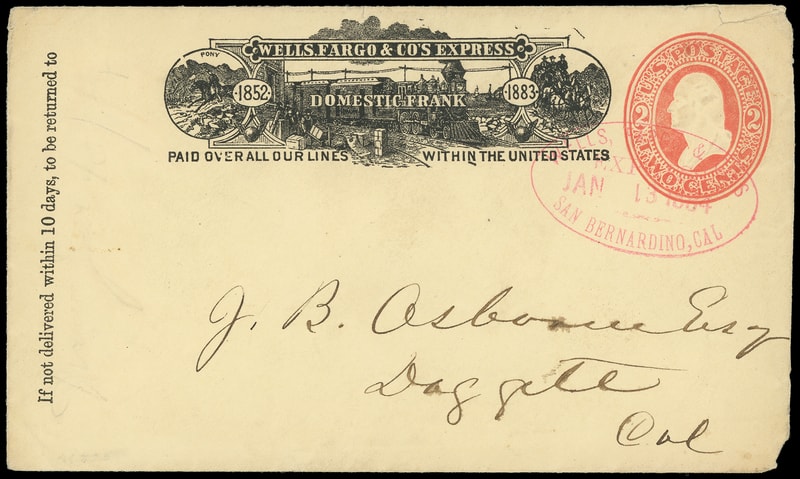 If not delivered within 10 days, to be returned to
PONY
WELLS, FARGO & CO'S EXPRESS
1852
DOMESTIC FRANK
1883
PAID OVER ALL OUR LINES WITHIN THE UNITED STATES
U.S. POSTAGE
2 2
TWO CENTS
WELLS,
JAN 13 1884
SAN BERNARDINO, CAL
J. B. Osborn Esq
Daggett
Cal